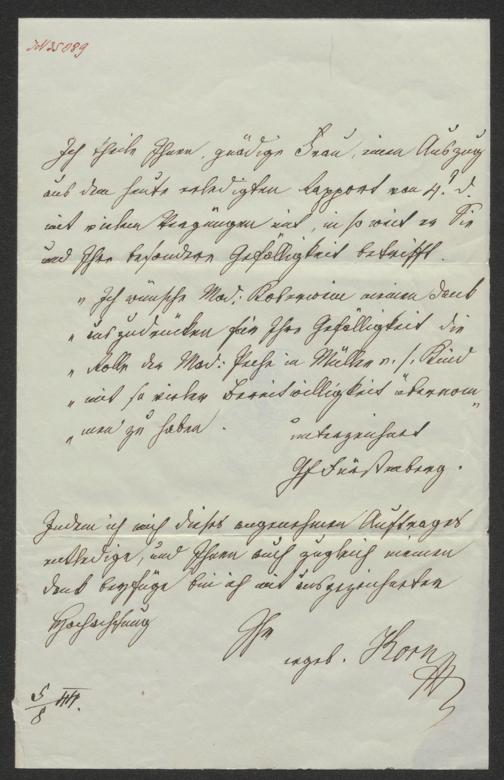 JN 35089
Ich theile Ihnen, gnädige Frau, einen Auszug
aus dem heute erledigten Rapport vom 4t. d.
mit vielem Vergnügen mit, in so weit er Sie
und Ihre besondere Gefälligkeit betrifft.
„ Ich wünsche Mad: Koberwein meinen Dank
„ auszudrücken für Ihre Gefälligkeit die
„ Rolle der Mad: Peche in Müller u. s. Kind
„ mit so vieler Bereitwilligkeit übernom„
„ men zu haben.
unterzeichnet
Gf Fürstenberg.
Indem ich mich dieses angenehmen Auftrages
entledige, und Ihnen auch zugleich meinen
Dank beyfüge bin ich mit ausgezeichneter
Hochachtung
Ihr
ergeb. Korn
5/8 44.